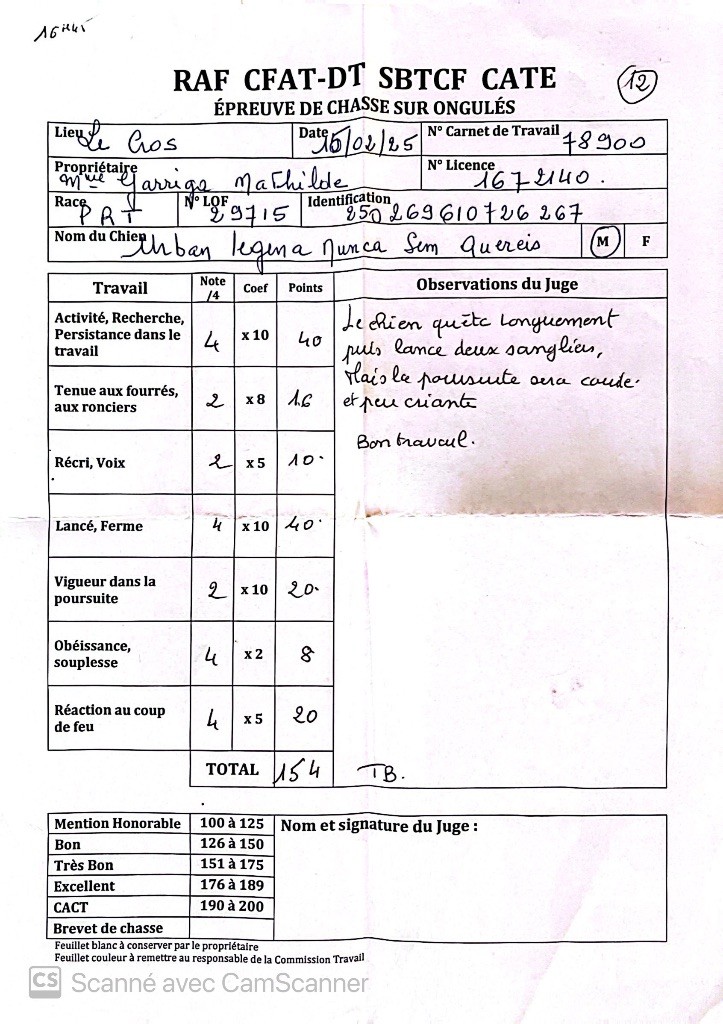 16H45
12
RAF CFAT-DT SBTCF CATE
ÉPREUVE DE CHASSE SUR ONGULÉS
Lieu Le Cros Date 16/02/25 N° Carnet de Travail 78900
Propriétaire Mme Garriga Mathilde N° Licence 1672140.
Race PRT N° LOF 29715 Identification 250269610726267
Nom du Chien Urban legena Nunca Sem Quereis M F
Travail Note /4 Coef Points Observations du Juge
Activité, Recherche, Persistance dans le travail 4 x 10 40
Tenue aux fourrés, aux ronciers 2 x 8 16
Récri, Voix 2 x 5 10
Lancé, Ferme 4 x 10 40
Vigueur dans la poursuite 2 x 10 20
Obéissance, souplesse 4 x 2 8
Réaction au coup de feu 4 x 5 20
TOTAL 154 TB.
Le chien quête longuement
puis lance deux sangliers,
Mais la poursuite sera
et peu criante
Bon travail.
Mention Honorable 100 à 125
Bon 126 à 150
Très Bon 151 à 175
Excellent 176 à 189
CACT 190 à 200
Brevet de chasse
Nom et signature du Juge :
Feuillet blanc à conserver par le propriétaire
Feuillet couleur à remettre au responsable de la Commission Travail
CS Scanné avec CamScanner